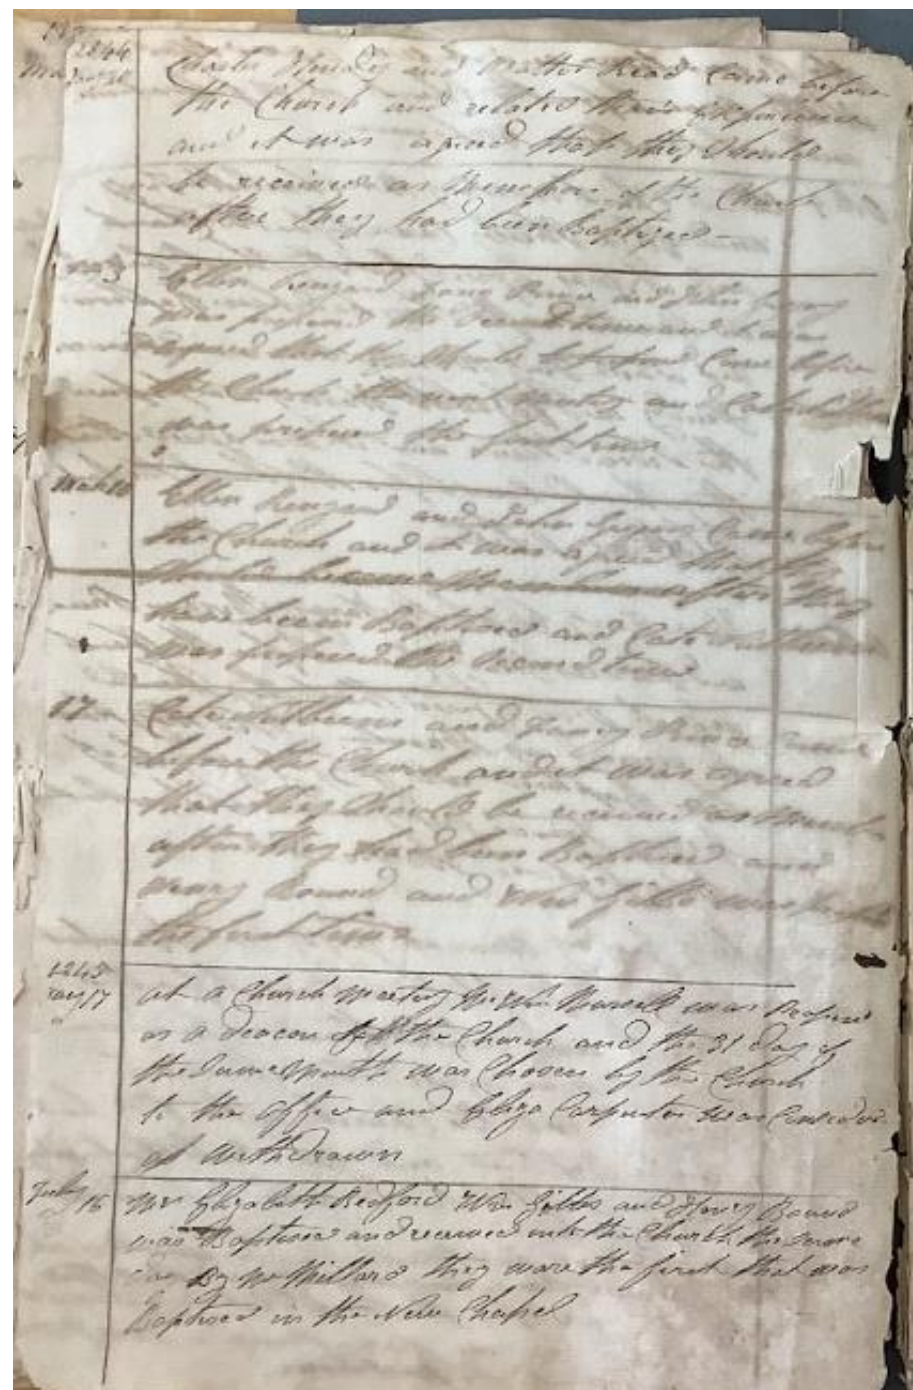 1844
and Martha Read Came before
the Church and related their Experience
and it was agreed that they Should
be received as Members of the Church
after they had been Baptized
3 Ellen and John
was proposed the Second time and it was
agreed that they Should Come before
the Church the next meeting and
was proposed the first time
March 10 Ellen and John Came before
the Church and it was agreed that they
Should become Members after they
have been Baptised and
was proposed the Second time
17 and Came
before the Church and it was agreed
that they Should be received as Members
after they had been Baptised and
Henry Round and Wm Gibbs was
the first time
1845
17 at a Church meeting Mr Wm was Proposed
as a deacon of the Church and the 31 day of
the Same Month was Chosen by the Church
to the office and Eliza Carpenter was Considered
as withdrawn
July 16 Mrs Elizabeth Redford Wm Gibbs and Henry Round
was Baptised and received into the Church the same
day By Mr Millard they ware the first that was
Baptised in the New Chapel